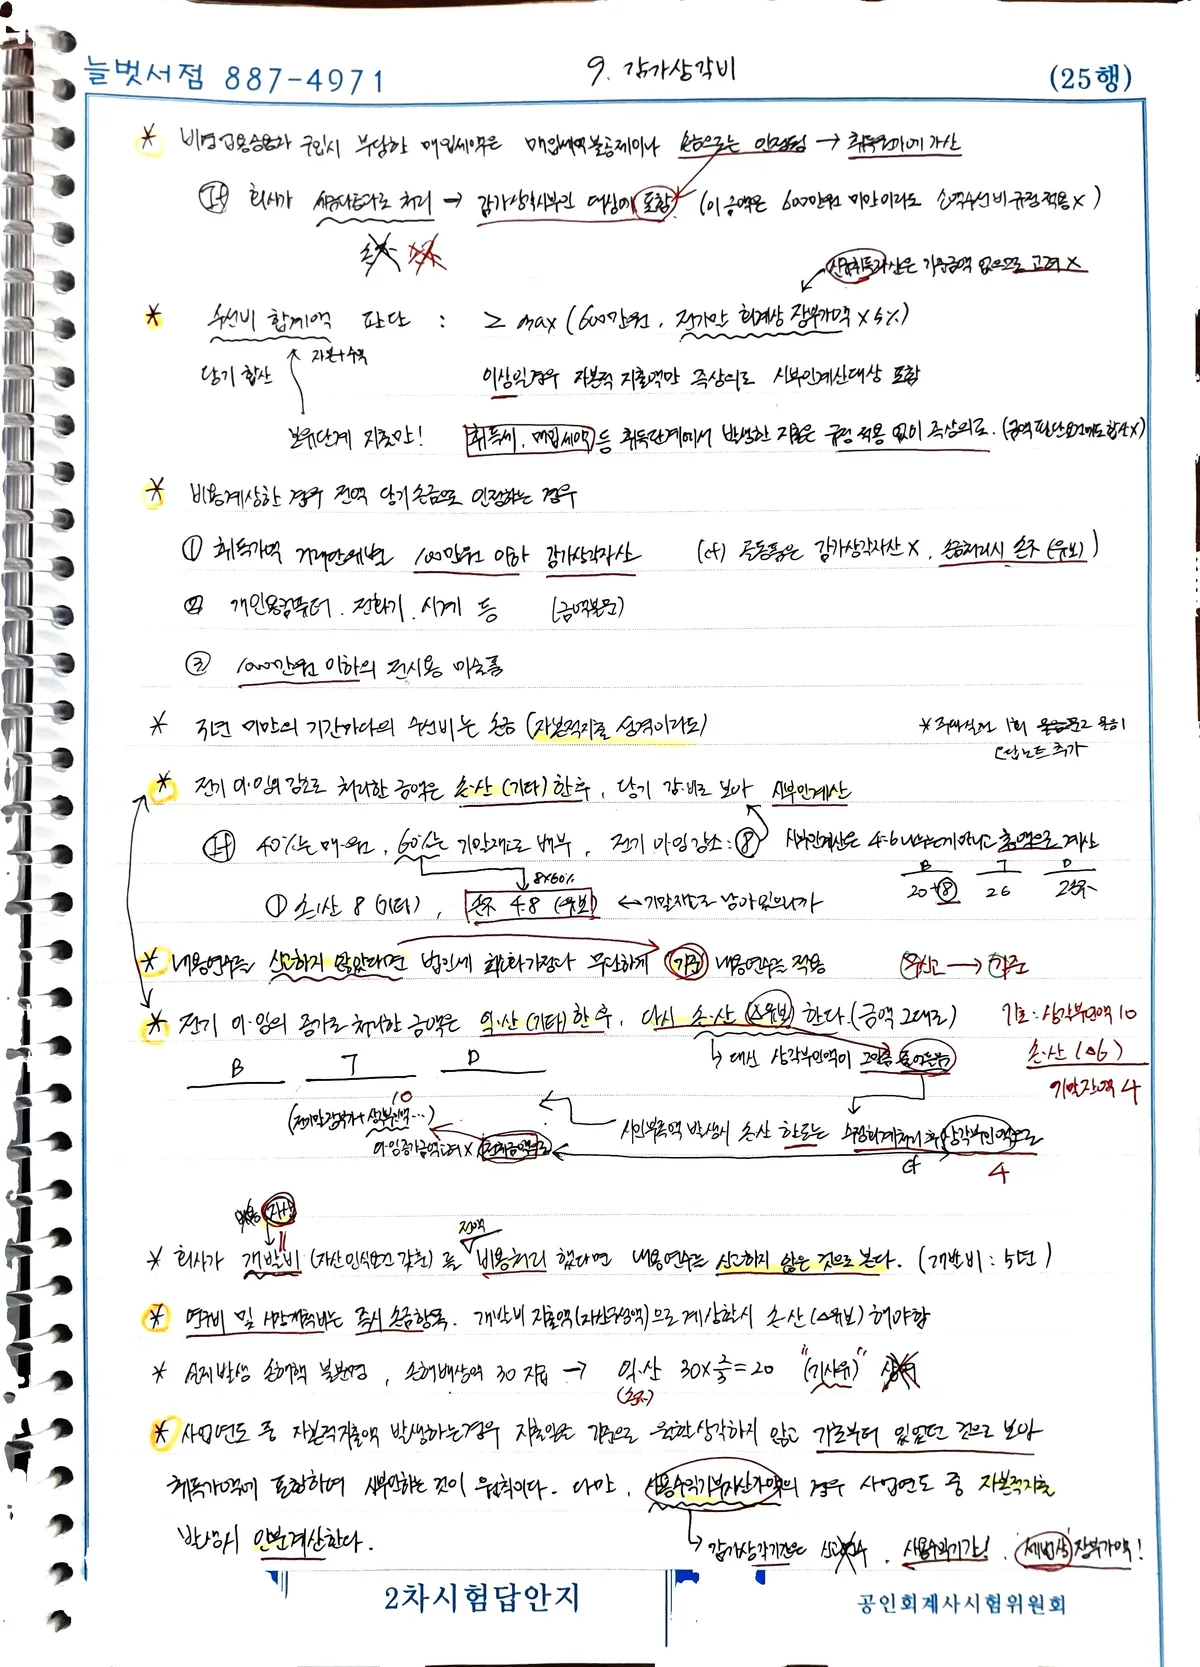 늘벗서점 887-4971
9. 감가상각비
(25행)
* 비영업용승용차 구입시 부담한 매입세액은 매입세액불공제이나 손금으로는 인정됨 → 취득원가에 가산
If 회사가 세금과공과로 처리 → 감가상각시부인 대상에 포함. (이 금액은 600만원 미만이라도 소액수선비규정적용 X)
손 손
신규취득자산은 기초금액 없으므로 고려 X
* 수선비 합계액 판단 : ≥ max (600만원, 전기말 회계상 장부가액 × 5%)
자본+수익
당기 합산
이상일경우 자본적 지출액만 즉상의로 시부인계산대상 포함
보유단계 지출만!
취득세, 매입세액 등 취득단계에서 발생한 지출은 규정 적용 없이 즉상의로. (금액판단요건에도 합산X)
* 비용계상한 경우 전액 당기손금으로 인정하는 경우
① 취득가액 거래단위별로 100만원 이하 감가상각자산 (cf) 골동품은 감가상각자산 X, 손금처리시 손不 (유보)
② 개인용컴퓨터, 전화기, 시계 등 (금액불문)
③ 1000만원 이하의 전시용 미술품
* 3년 미만의 기간마다의 수선비는 손금 (자본적지출 성격이라도)
1회
답노트 추가
* 전기 이·잉의 감소로 처리한 금액은 손·산 (기타) 한 후, 당기 감·비로 보아 시부인계산
If 40%는 매·원, 60%는 기말재고로 배부, 전기 이·잉 감소 : ⑧ 시부인계산은 4:6 나누는게아니고 총액으로 계산
8×60%
B T D
20+⑧ 26 2손不
① 손·산 8 (기타), 손不 4.8 (유보) ← 기말재고로 남아있으니까
* 내용연수를 신고하지 않았다면 법인세 최소화가정이나 무단하게 기준 내용연수를 적용
무신고 → 기준
* 전기 이·잉의 증가로 처리한 금액은 익·산 (기타) 한 후, 다시 손·산 (△유보) 한다. (금액 그대로)
기초 : 상각부인액 10
손·산 (△6)
기말잔액 4
↳ 대신 상각부인액이 그만큼 줄어든다
B T D
10
(전기말장부가 + 상각부인액…)
이·잉증가금액 더 X
시인부족액 발생시 손산 한도는 수정회계처리 후 상각부인액으로
cf
4
비용 자산
전액
* 회사가 개발비 (자산인식요건 갖춤) 를 비용처리 했다면 내용연수를 신고하지 않은 것으로 본다. (개발비 : 5년)
* 연구비 및 시장개척비는 즉시 손금항목. 개발비 지출액(자산구성액)으로 계상한시 손·산 (△유보) 해야함
* 실제발생 손해액 불분명, 손해배상액 30 지급 → 익·산 30×⅔=20 "(기사유)"
(손不)
* 사업연도 중 자본적지출액 발생하는경우 지출일은 기준으로 월할상각하지 않고 기초부터 있었던 것으로 보아
취득가액에 포함하여 시부인하는 것이 원칙이다. 다만, 사용수익기부자산가액의 경우 사업연도 중 자본적지출
발생시 안분계산한다.
↳ 감가상각기간은, 사용수익기간!, 세법상 장부가액!
2차시험답안지
공인회계사시험위원회